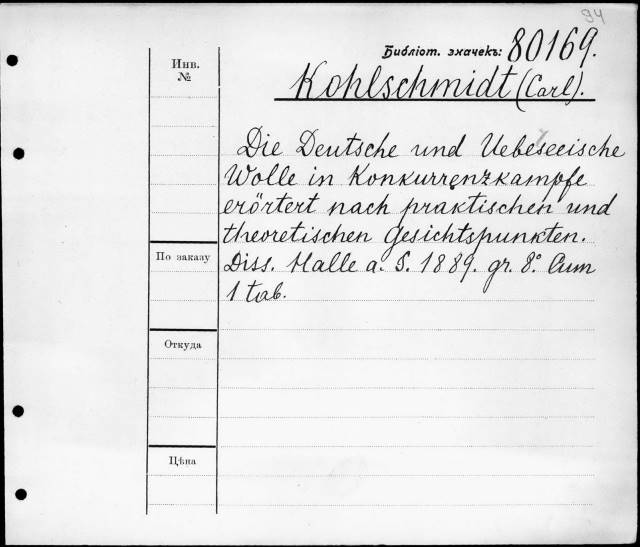 94
Библіот. значекъ: 80169.
Инв.
№
Kohlschmidt (Carl).
Die Deutsche und Uebeseeische
Wolle in Konkurrenzkampfe
erörtert nach praktischen und
theoretischen Gesichtspunkten.
По заказу
Diss. Halle a. S. 1889. gr. 8° Cum
1 tab.
Откуда
Цѣна